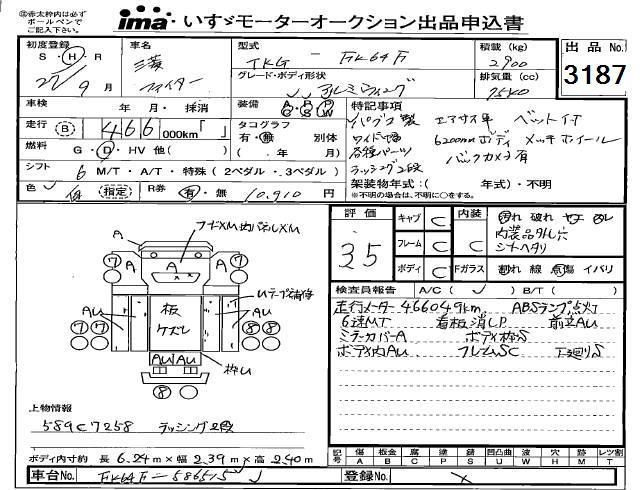 ◎赤太枠内は必ず
ボールペンで
ご記入下さい。
ima・いすゞモーターオークション出品申込書
初度登録 S・H・R 27/9月
車名 三菱 ファイター
型式 TKG - FK64F
グレード・ボディ形状 アルミウィング
積載量 (kg) 2900
排気量 (cc) 7540
出品No. 3187
車検 年・月・抹消
装備 A/C P/S P/W
走行 B 466 000km「 」
タコグラフ 有・無 別体 ( . 年 月)
燃料 G・D・HV 他( )
シフト 6 M/T・A/T・特殊 (2ペダル・3ペダル)
色 指定
R券 有・無 10,910円
特記事項
パブコ製 エアサス車 ベット付
ワイド幅 6200mmボディ メッキホイール
各種パーツ バックカメラ有
ラッシング2段
架装物年式:( 年式)・不明
※不明の場合は、不明に○をする。
評価 3.5
キャブ C 内装 C
フレーム C
ボディ C Fガラス
汚れ 破れ セエ ヌレ
内装品外し穴
シートヘタリ
割れ 線 点傷 イバリ
フードXM 内パネルXM
A A A
⑦ ⑦
AU AU
Uテープ補修
板ケズレ
⑦⑦ ⑧⑧
AU AU
枠U
⑧
検査員報告 A/C( )
走行メーター466049km ABSランプ点灯
6速MT 看板消しP 前立AU
ミラーカバーA ボディ枠S
ボディ内AU フレームSC 下廻りS
上物情報
589C7258 ラッシング2段
ボディ内寸約 長 6.24m×幅 2.39m×高 2.40m
記号 傷 A 板金 B 腐 C 塗 P 錆 S 凹凸曲 U 波 W 穴 H 跡 M レツ割 T
車台No. FK64F-586515
登録No.